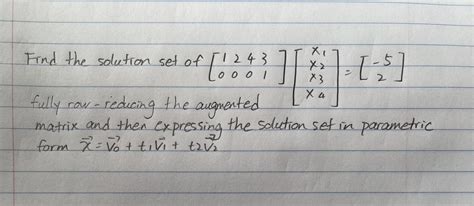 Find the solution set of [1 2 4 3; 0 0 0 1] [x₁; x₂; x₃; x₄] = [-5; 2]
fully row-reducing the augmented
matrix and then expressing the solution set in parametric
form x⃗ = v⃗₀ + t₁v⃗₁ + t₂v⃗₂